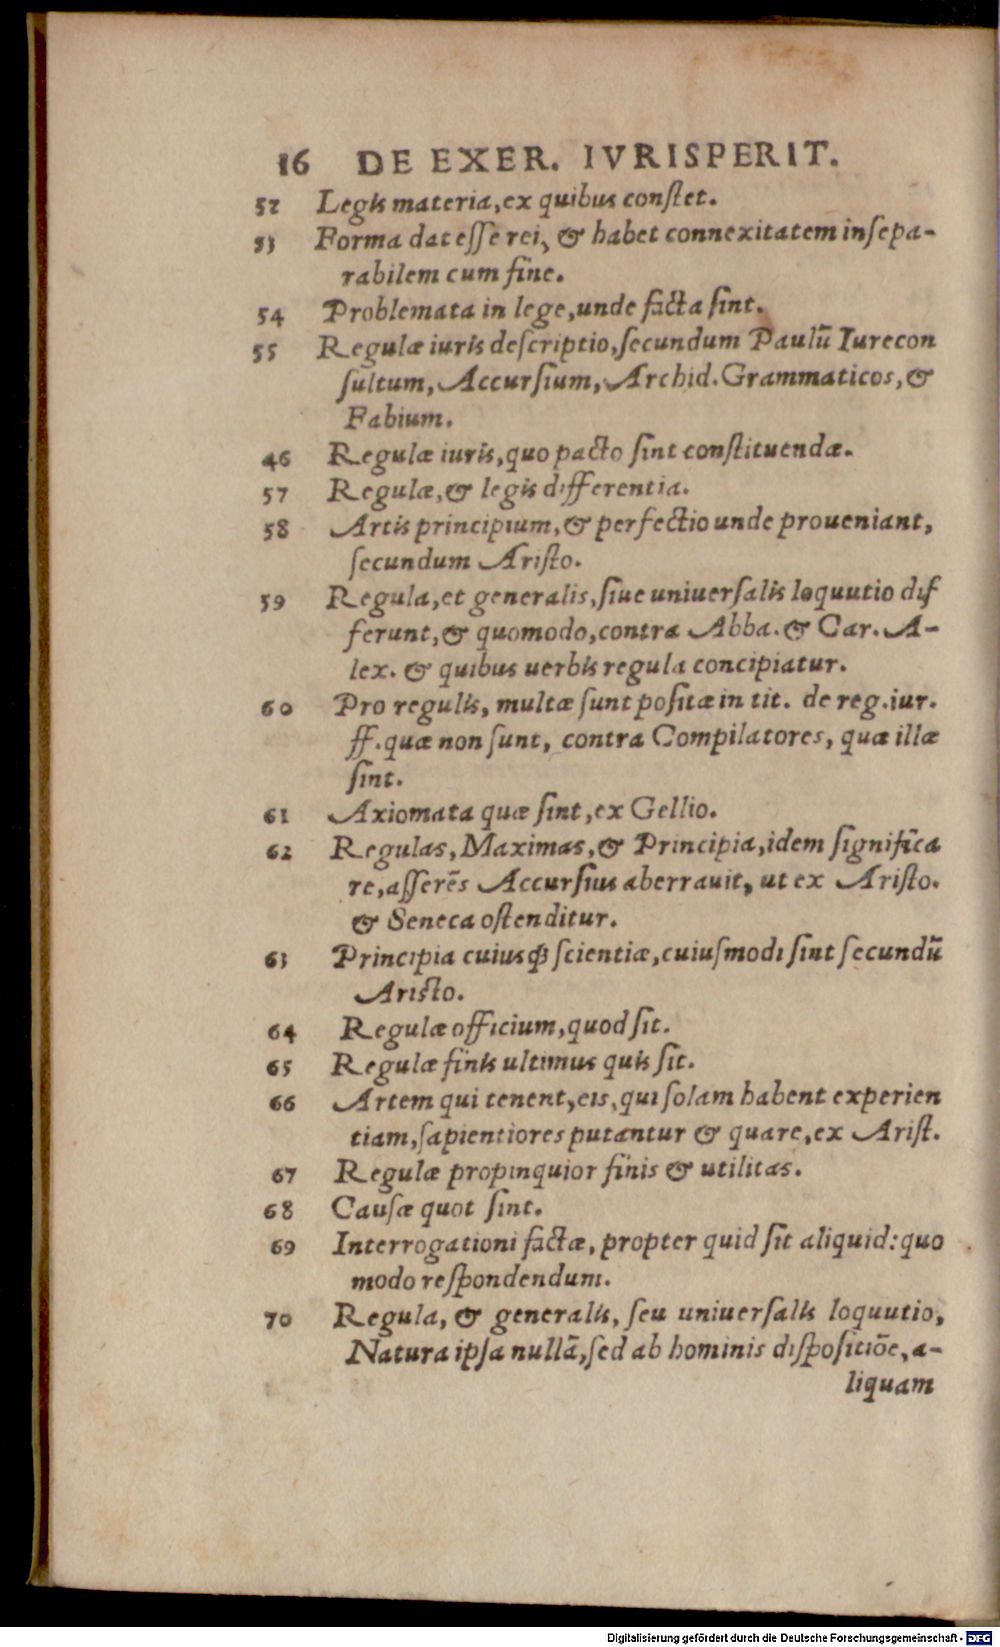 16 DE EXER. IVRISPERIT.
52 Legis materia, ex quibus conſtet.
53 Forma dat eſſe rei, & habet connexitatem inſepa-
rabilem cum fine.
54 Problemata in lege, unde facta ſint.
55 Regulæ iuris deſcriptio, ſecundum Paulū Iurecon
ſultum, Accurſium, Archid. Grammaticos, &
Fabium.
46 Regulæ iuris, quo pacto ſint conſtituendæ.
57 Regulæ, & legis differentia.
58 Artis principium, & perfectio unde proueniant,
ſecundum Ariſto.
59 Regula, et generalis, ſiue uniuerſalis loquutio dif
ferunt, & quomodo, contra Abba. & Car. A-
lex. & quibus uerbis regula concipiatur.
60 Pro regulis, multæ ſunt poſitæ in tit. de reg. iur.
ff. quæ non ſunt, contra Compilatores, quæ illæ
ſint.
61 Axiomata quæ ſint, ex Gellio.
62 Regulas, Maximas, & Principia, idem ſignifica
re, aſſerēs Accurſius aberrauit, ut ex Ariſto.
& Seneca oſtenditur.
63 Principia cuiusꝗꝫ ſcientiæ, cuiuſmodi ſint ſecundū
Ariſto.
64 Regulæ officium, quod ſit.
65 Regulæ finis ultimus quis ſit.
66 Artem qui tenent, eis, qui ſolam habent experien
tiam, ſapientiores putantur & quare, ex Ariſt.
67 Regulæ propinquior finis & utilitas.
68 Cauſæ quot ſint.
69 Interrogationi factæ, propter quid ſit aliquid: quo
modo reſpondendum.
70 Regula, & generalis, ſeu uniuerſalis loquutio,
Natura ipſa nullā, ſed ab hominis diſpoſitiōe, a-
liquam
Digitalisierung gefördert durch die Deutsche Forschungsgemeinschaft - DFG